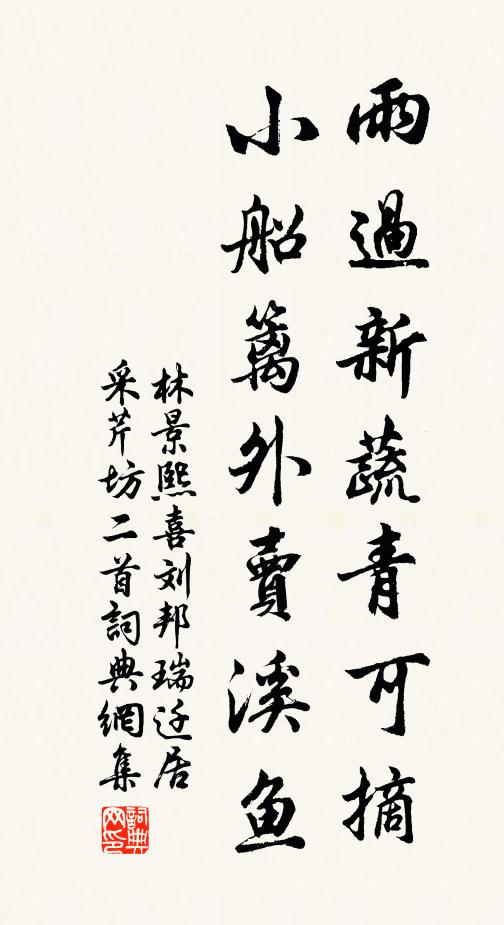 雨過新蔬青可摘
小船籬外賣溪魚
林景熙喜刘邦瑞迁居
采芹坊二首詞典網集
詞典
网印